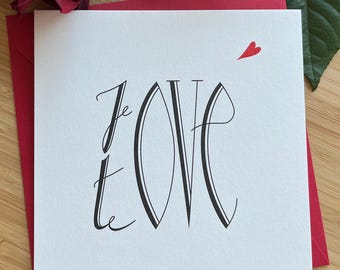 Je
te
OVE